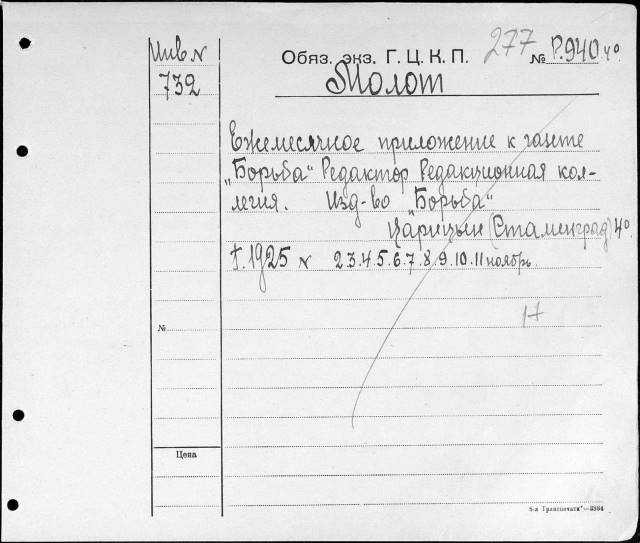 Инв N
732
Обяз. экз. Г. Ц. К. П. 277 № Р.940 4°
Молот
Ежемесячное приложение к газете
„Борьба“ Редактор Редакционная кол-
легия. Изд-во „Борьба“
Царицын (Сталинград) 4°
Г. 1925 N 2.3.4.5.6.7.8.9.10.11 ноябрь.
1+
№
Цена
6-я Транспечати"—3884